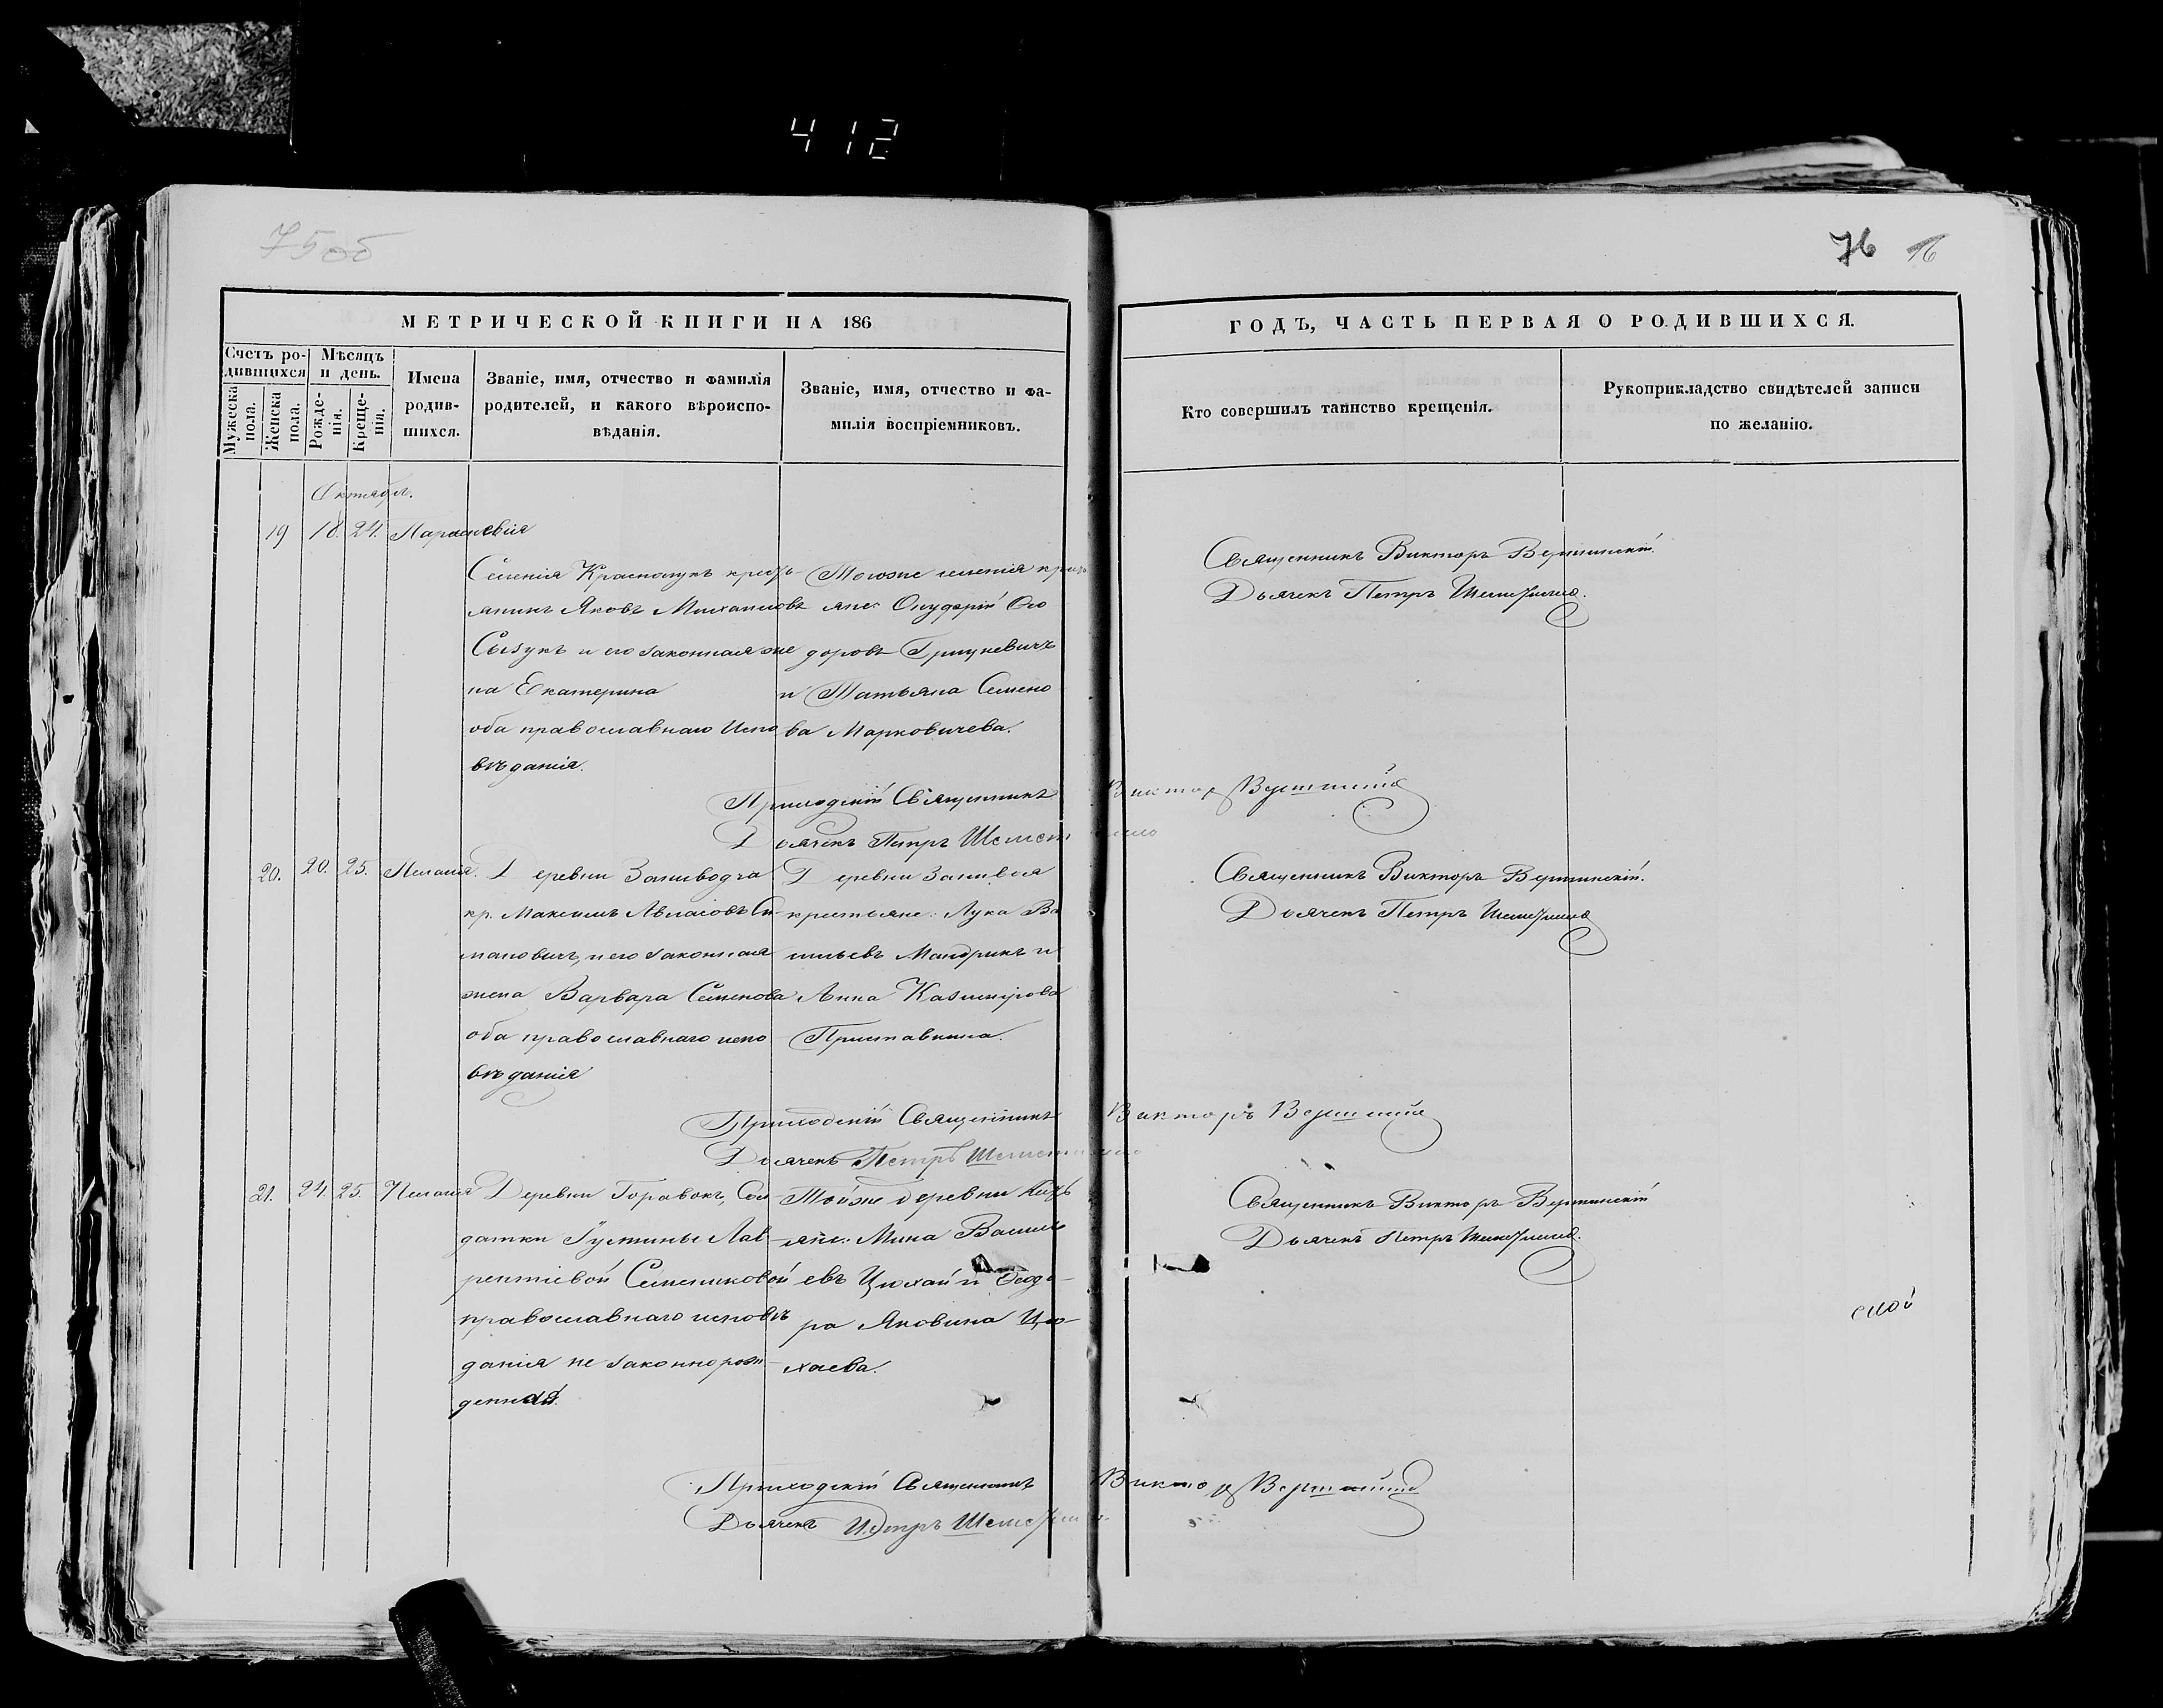 412
75об
76 16
МЕТРИЧЕСКОЙ КНИГИ НА 186
ГОДЪ, ЧАСТЬ ПЕРВАЯ О РОДИВШИХСЯ.
Счетъ ро-
дившихся
Мужеска
пола.
Женска
пола.
Мѣсяцъ
и день.
Рожде-
нія.
Креще-
нія.
Имена
родив-
шихся.
Званіе, имя, отчество и фамилія
родителей, и какого вѣроиспо-
вѣданія.
Званіе, имя, отчество и фа-
милія воспріемниковъ.
Кто совершилъ таинство крещенія.
Рукоприкладство свидѣтелей записи
по желанію.
Октябрь.
19 18. 24. Параскевія
Селенія Краснолукъ кресть-
янинъ Яковъ Михаиловъ
Сызукъ и его законная же
на Екатерина
оба православнаго Испо
вѣданія.
Тогоже селенія
яне:
доровъ Грицкевичъ
и Татьяна Семено
ва Марковичева.
Священникъ Викторъ
Дьячекъ Петръ
Приходскій Священникъ Викторъ
Дьячекъ Петръ
20. 20. 25. Пелагія.
Деревни
кр. Максимъ
мановичъ, и его законная
жена Варвара Семенова
оба православнаго испо
вѣданія
Деревни
крестьяне: Лука Ва
сильевъ Мандрикъ и
Анна Казимірова
Приставкина.
Священникъ Викторъ
Дьячекъ Петръ
Приходскій Священникъ Викторъ
Дьячекъ Петръ
21. 24. 25. Пелагія
Деревни Горавокъ, Сол
датки Іустины Лав-
рентіевой Семениковой
православнаго исповѣ
данія не законнорож-
денная.
Тойже деревни
яне: Мина Василь
евъ Цюхай и Ѳеодо-
ра Яковина Цю-
хаева.
Священникъ Викторъ
Дьячекъ Петръ
Приходскій Священникъ Викторъ
Дьячекъ Петръ